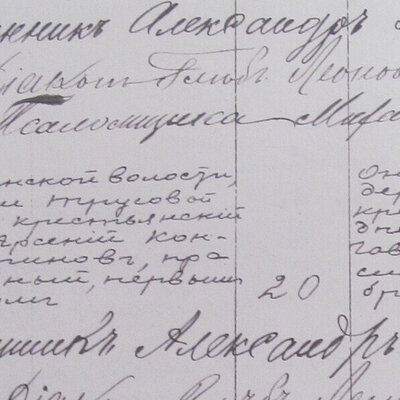 нникъ Александръ
Діаконъ Глѣбъ Леоно
Псаломщика Мира
нской волости,
и Трусовой
крестьянскій
рсеній Кон-
тиновъ, пра
ный, первымъ
20
Он
дер
кре
дне
гав
си
бр
нникъ Александръ